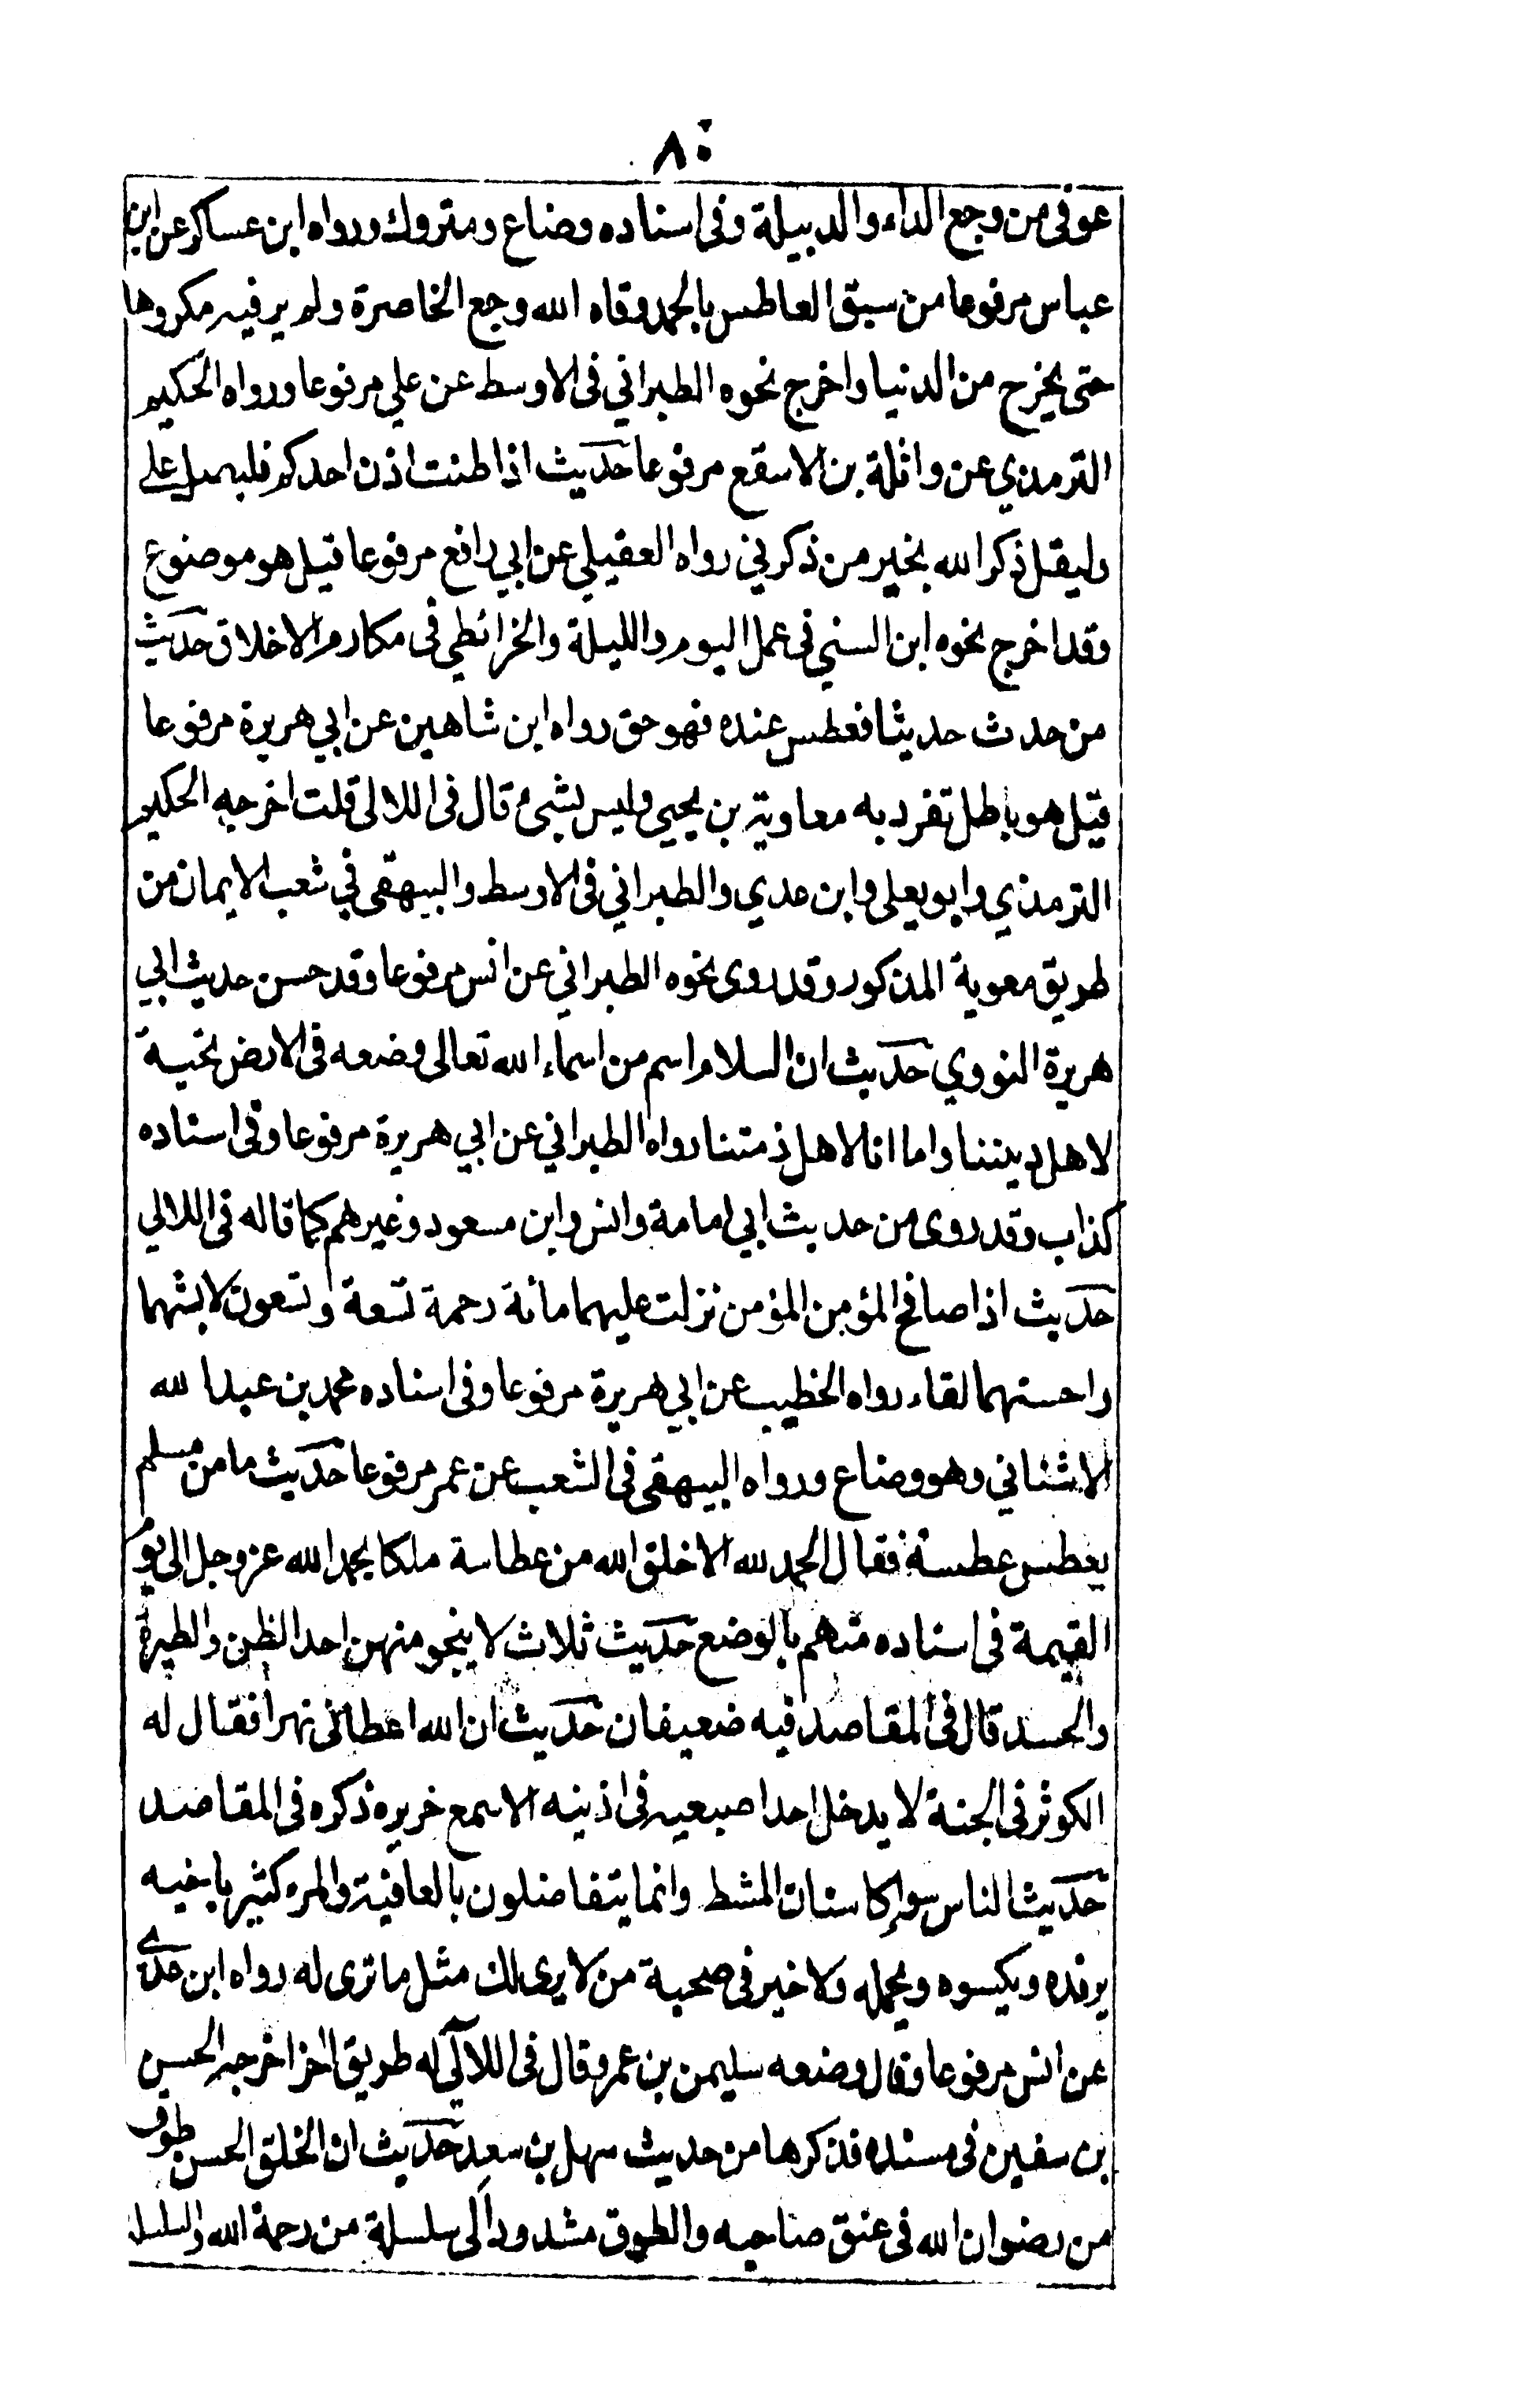 ٨٠
عوفى من وجع الداء والدبيلة وفى اسناده وضاع ومتروك ورواه ابن عساكر عن ابن
عباس مرفوعا من سبق العاطس بالحمد وقاه الله وجع الخاصرة ولم ير فيه مكروها
حتى يخرج من الدنيا واخرج نحوه الطبراني فى الاوسط عن علي مرفوعا ورواه الحكيم
الترمذي عن واثلة بن الاسقع مرفوعا حديث اذا طنت اذن احدكم فليصل على
وليقل ذكر الله بخير من ذكرني رواه العقيلي عن ابي رافع مرفوعا قيل هو موضوع
وقد اخرج نحوه ابن السني فى عمل اليوم والليلة والخرائطي فى مكارم الاخلاق حديث
من حدث حديثا فعطس عنده فهو حق رواه ابن شاهين عن ابي هريرة مرفوعا
قيل هو باطل تفرد به معاوية بن يحيى وليس بشيء قال فى اللالى قلت اخرجه الحكيم
الترمذي وابو يعلى وابن عدي والطبراني فى الاوسط والبيهقى في شعب الايمان من
طريق معوية المذكور وقد روى نحوه الطبراني عن انس مرفوعا وقد حسن حديث ابي
هريرة النووي حديث ان السلام اسم من اسماء الله تعالى وضعه فى الارض تحية
لاهل ديننا واما انا لاهل ذمتنا رواه الطبراني عن ابي هريرة مرفوعا وفى اسناده
كذاب وقد روى من حديث ابي امامة وانس وابن مسعود وغيرهم كما قاله فى اللالي
حديث اذا صافح المؤمن المؤمن نزلت عليهما مائة رحمة تسعة وتسعون لابشهما
واحسنهما لقاء رواه الخطيب عن ابي هريرة مرفوعا وفى اسناده محمد بن عبد الله
الاشناني وهو وضاع ورواه البيهقى فى الشعب عن عمر مرفوعا حديث ما من مسلم
يعطس عطسة فقال الحمد لله الا خلق الله من عطاسة ملكا يحمد الله عز وجل الى يوم
القيمة فى اسناده متهم بالوضع حديث ثلاث لا ينجو منهن احد الظن والطيرة
والحسد قال فى المقاصد فيه ضعيفان حديث ان الله اعطانى نهرا فقال له
الكوثر فى الجنة لا يدخل احد اصبعيه فى اذنيه الا سمع خريره ذكره فى المقاصد
حديث الناس سواء كاسنان المشط وانما يتفاضلون بالعافية والمرء كثير باخيه
يرفده ويكسوه ويحمله ولا خير فى صحبة من لا يرى لك مثل ما ترى له رواه ابن عدي
عن انس مرفوعا وقال وضعه سليمن بن عمرو قال فى اللآلى له طريق اخر اخرجه الحسن
بن سفين فى مسنده فذكرها من حديث سهل بن سعد حديث ان الخلق الحسن طوق
من رضوان الله فى عنق صاحبه والطوق مشدود الى سلسلة من رحمة الله والسلسلة